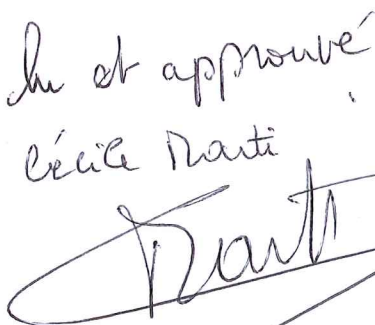 lu et approuvé
Cécile Marti
Marti